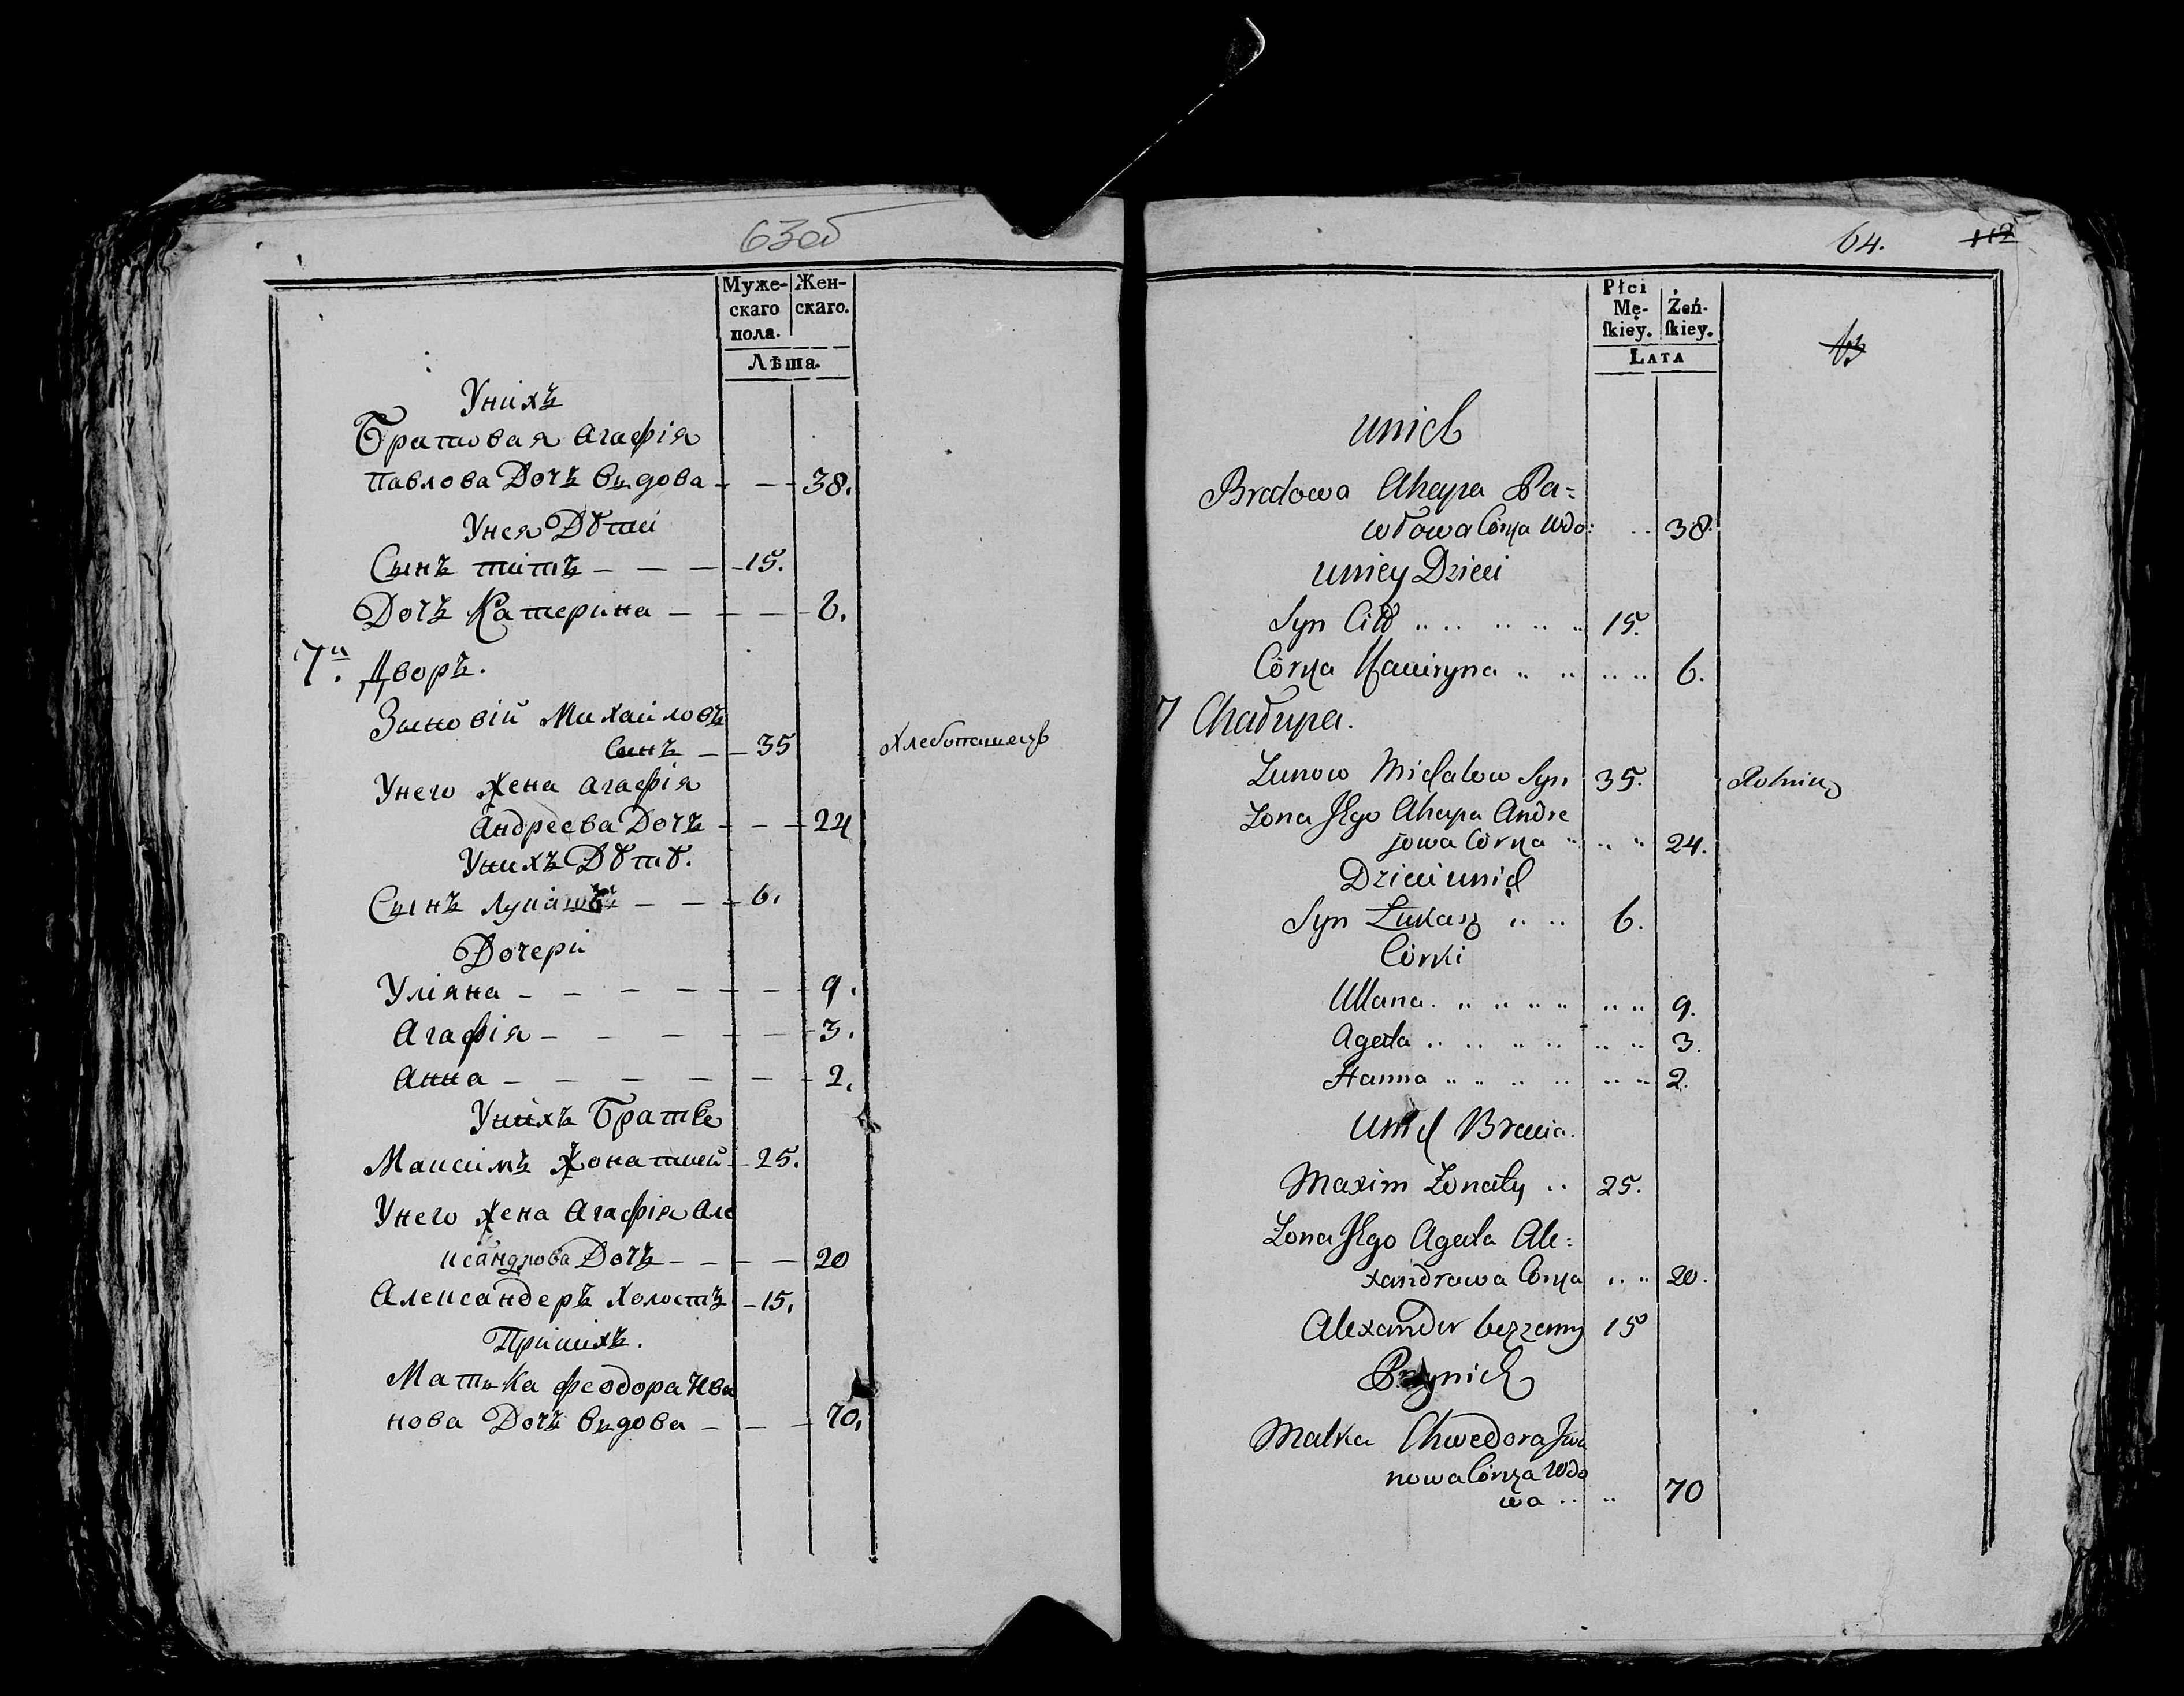 63об
Муже-
скаго
пола.
Жен-
скаго.
Лѣта.
Унихъ
Братовая Агафія
Павлова Дочъ Вьдова 38.
Унея Дѣти
Сынъ титъ 15.
Дочъ Катерина 6.
7й. Дворъ.
Зиновій Михайловъ
Сынъ 35 Хлебопашецъ
Унего Жена Агафія
Андреева Дочъ 24
Унихъ Дѣтѣ.
Сынъ 6.
Дочери
Уліяна 9.
Агафія 3.
Анна 2.
Унихъ Братье
Максимъ Жонатией 25.
Унего Жена Агафія Але
ксандрова Дочъ 20
Александеръ Холостъ 15.
Принихъ.
Матька Феодора Ива
нова Дочъ Вьдова 70.
64. 112
Płci
Mę-
ſkiey.
Żeń-
ſkiey.
LATA
unich
Bratowa Ahapa Pa=
włowa Córka Wdo: 38.
uniey Dzieci
Syn Cit 15.
Córka Kaciryna 6.
7 Chałupa.
Zunow Michałow Syn 35. Rolnik
Żona Jego Ahapa Andre
jowa Córka 24.
Dzieci unich
Syn Łukasz 6.
Córki
Ullana 9.
Agata 3.
Hanna 2.
unich Bracia.
Maxim Żonaty 25.
Żona Jego Agata Ale=
xandrowa Córka 20.
Alexander bezżenny 15
Przynich
Matka Chwedora Iwa
nowa Córka Wdo
wa 70